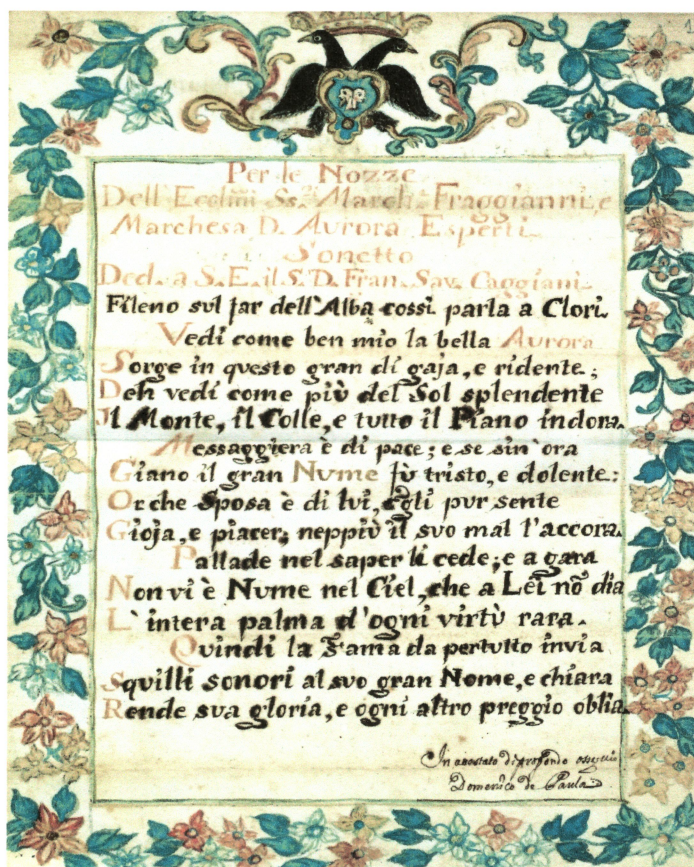 Per le Nozze
Dell' Ecc̃lm̃i Ss.ri March.e Fraggianni, e
Marchesa D. Aurora Esperti.
Sonetto
Ded.a a S. E. il S. D. Fran. Sav. Caggiani.
Fileno sul far dell'Alba cossi parla a Clori.
Vedi come ben mio la bella Aurora
Sorge in questo gran di gaja, e ridente;
Deh vedi come più del Sol splendente
Il Monte, il Colle, e tutto il Piano indora.
Messaggiera è di pace; e se sin'ora
Giano il gran Nume fù tristo, e dolente:
Or che Sposa è di lui, egli pur sente
Gioja, e piacer, neppiù il suo mal l'accora.
Pallade nel saper li cede; e a gara
Non vi è Nume nel Ciel, che a Lei nõ dia
L'intera palma d'ogni virtù rara.
Quindi la Fama da pertutto invia
Squilli sonori al suo gran Nome, e chiara
Rende sua gloria, e ogni altro preggio oblia.
In attestato di profondo ossequio
Domenico de Paula